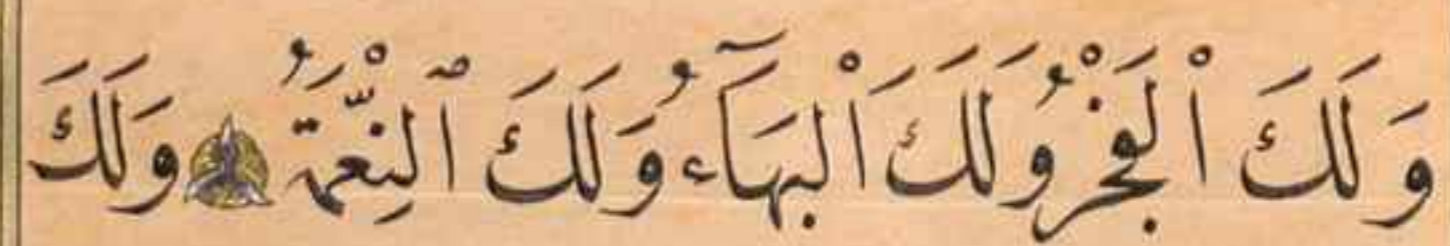 وَلَكَ الْفَخْرُ وَلَكَ الْبَهَآءُ وَلَكَ النِّعْمَةُ وَلَكَ